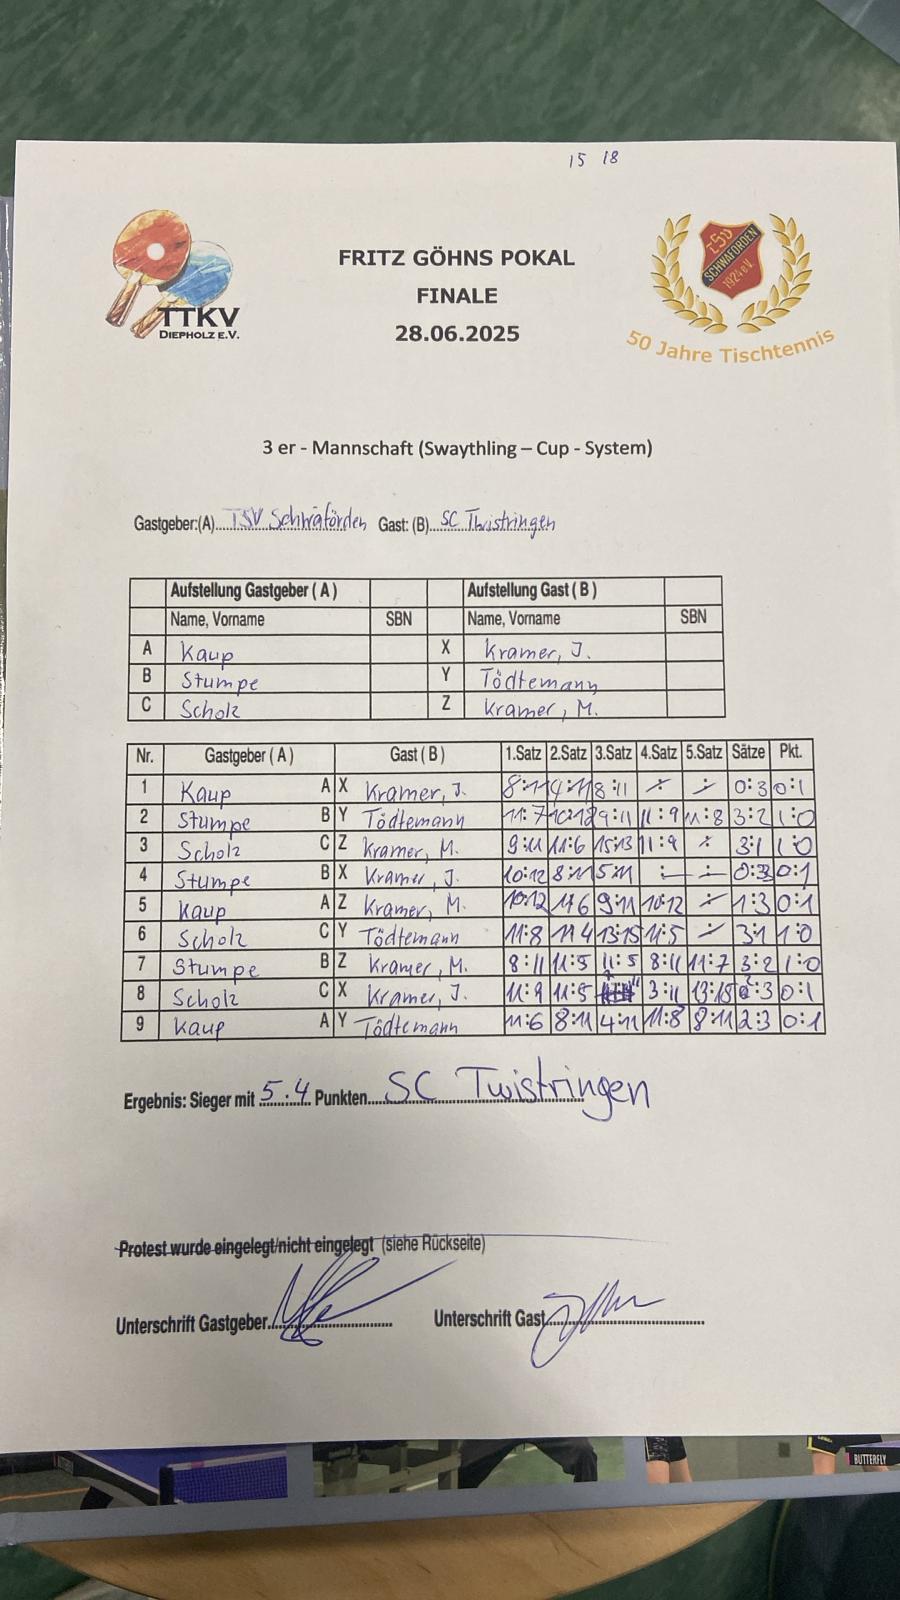 15 18
TTKV
DIEPHOLZ E.V.
FRITZ GÖHNS POKAL
FINALE
28.06.2025
TSV
SCHWAFÖRDEN
1924 e.V.
50 Jahre Tischtennis
3 er - Mannschaft (Swaythling – Cup - System)
Gastgeber:(A) TSV Schwaförden Gast: (B) SC Twistringen
Aufstellung Gastgeber ( A ) Aufstellung Gast ( B )
Name, Vorname SBN Name, Vorname SBN
A Kaup X Kramer, J.
B Stumpe Y Tödtemann
C Scholz Z Kramer, M.
Nr. Gastgeber ( A ) Gast ( B ) 1.Satz 2.Satz 3.Satz 4.Satz 5.Satz Sätze Pkt.
1 Kaup A X Kramer, J. 8:11 4:11 8:11 ÷ ÷ 0:3 0:1
2 Stumpe B Y Tödtemann 11:7 10:12 9:11 11:9 11:8 3:2 1:0
3 Scholz C Z Kramer, M. 9:11 11:6 15:13 11:9 ÷ 3:1 1:0
4 Stumpe B X Kramer, J. 10:12 8:11 5:11 ÷ ÷ 0:3 0:1
5 Kaup A Z Kramer, M. 10:12 11:6 9:11 10:12 ÷ 1:3 0:1
6 Scholz C Y Tödtemann 11:8 11:4 13:15 11:5 ÷ 3:1 1:0
7 Stumpe B Z Kramer, M. 8:11 11:5 11:5 8:11 11:7 3:2 1:0
8 Scholz C X Kramer, J. 11:9 11:5 3:11 13:15 2:3 0:1
9 Kaup A Y Tödtemann 11:6 8:11 4:11 11:8 8:11 2:3 0:1
Ergebnis: Sieger mit 5:4 Punkten SC Twistringen
Protest wurde eingelegt/nicht eingelegt (siehe Rückseite)
Unterschrift Gastgeber Unterschrift Gast
BUTTERFLY